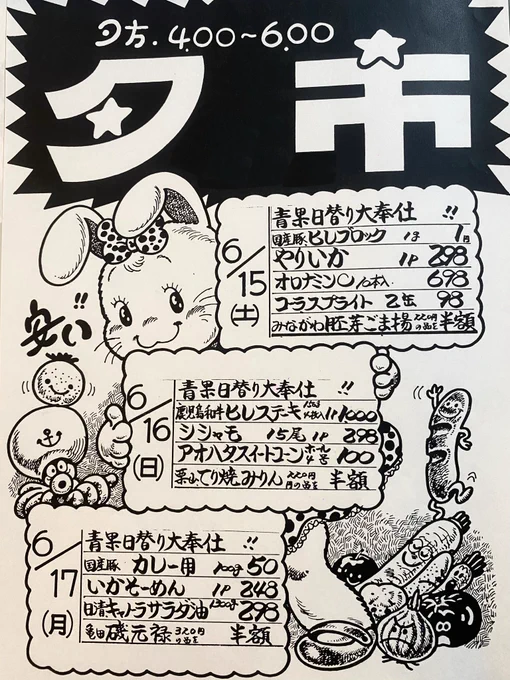 夕方.4.00〜6.00
夕市
安い!!
6/15(土)
青果日替り大奉仕!!
国産豚ヒレブロック 1g 1円
やりいか 1P 298
オロナミンC 10本入 698
コーラスプライト 2缶 98
みながわ胚芽ごま揚 220円の品を 半額
6/16(日)
青果日替り大奉仕!!
鹿児島和牛ヒレステーキ 1P 1000
シシャモ 15尾 1P 298
アオハタスイートコーン 100
栗山てり焼みりん 220円の品を 半額
6/17(月)
青果日替り大奉仕!!
国産豚 カレー用 100g 50
いかそーめん 1P 248
日清キャノーラサラダ油 1300g 298
亀田 磯元禄 320円の品を 半額